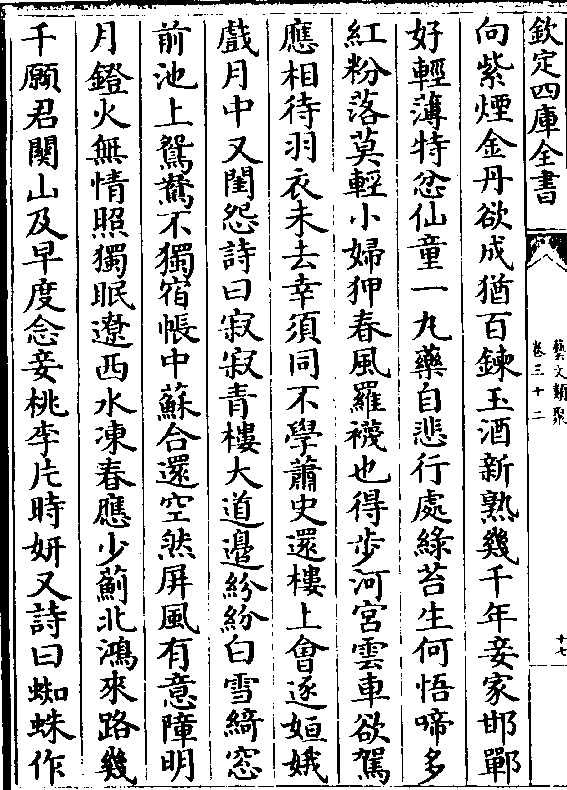 欽定四庫全書
藝文類聚
卷三十二
十七
向紫煙金丹欲成猶百鍊玉酒新熟幾千年妾家邯鄲
好輕薄特忿仙童一丸藥自悲行處綠苔生何悟啼多
紅粉落莫輕小婦狎春風羅襪也得步河宮雲車欲駕
應相待羽衣未去幸須同不學蕭史還樓上會逐姮娥
戲月中又閨怨詩曰寂寂青樓大道邉紛紛白雪綺窓
前池上鴛鴦不獨宿帳中蘇合還空然屏風有意障明
月鐙火無情照獨眠遼西水凍春應少薊北鴻來路幾
千願君關山及早度念妾桃李片時妍又詩曰蜘蛛作